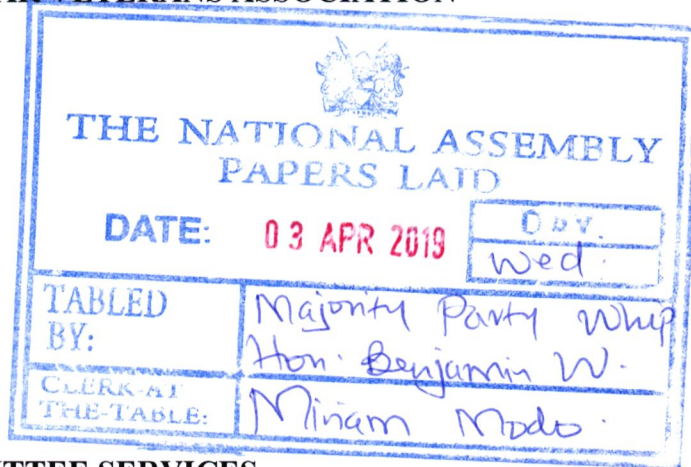 AR VETERANS ASSOCIATION
THE NATIONAL ASSEMBLY
PAPERS LAID
DATE: 03 APR 2019 DAY.
Wed.
TABLED BY: Majority Party Whip
Hon. Benjamin W.
CLERK-AT THE-TABLE: Miriam Modo.
TTEE SERVICES